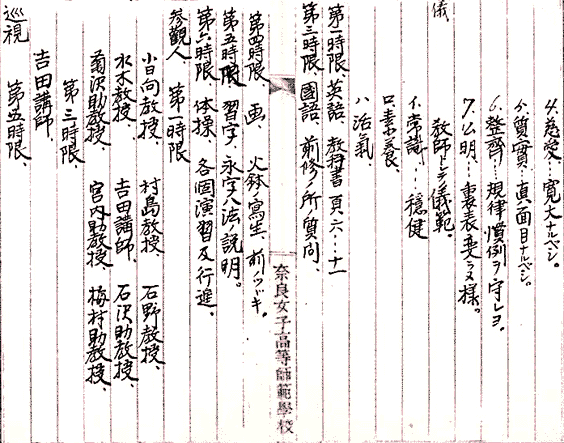 4.慈愛…寛大ナルベシ。
5.質實…真面目ナルベシ。
6.整齊…規律慣例ヲ守レヨ。
7.公明…裏表無ラヌ様。
教師トシテノ儀範。
イ.常識…穏健
ロ.素養、
ハ.活氣、
儀
第一時限、英語、教科書頁、六…十一
第三時限、國語、前修ノ所ノ質問、
奈良女子高等師範學校
第四時限、画、火鉢ノ寫生、前ノツヅキ。
第五時限、習字、永字八法ノ説明。
第六時限、体操、各個演習及行進、
参觀人 第一時限
小日向教授、村島教授、石野教授、
水木教授、吉田講師、石沢助教授、
菊沢助教授、宮内助教授、梅村助教授、
第三時限、
吉田講師、
巡視 第五時限、